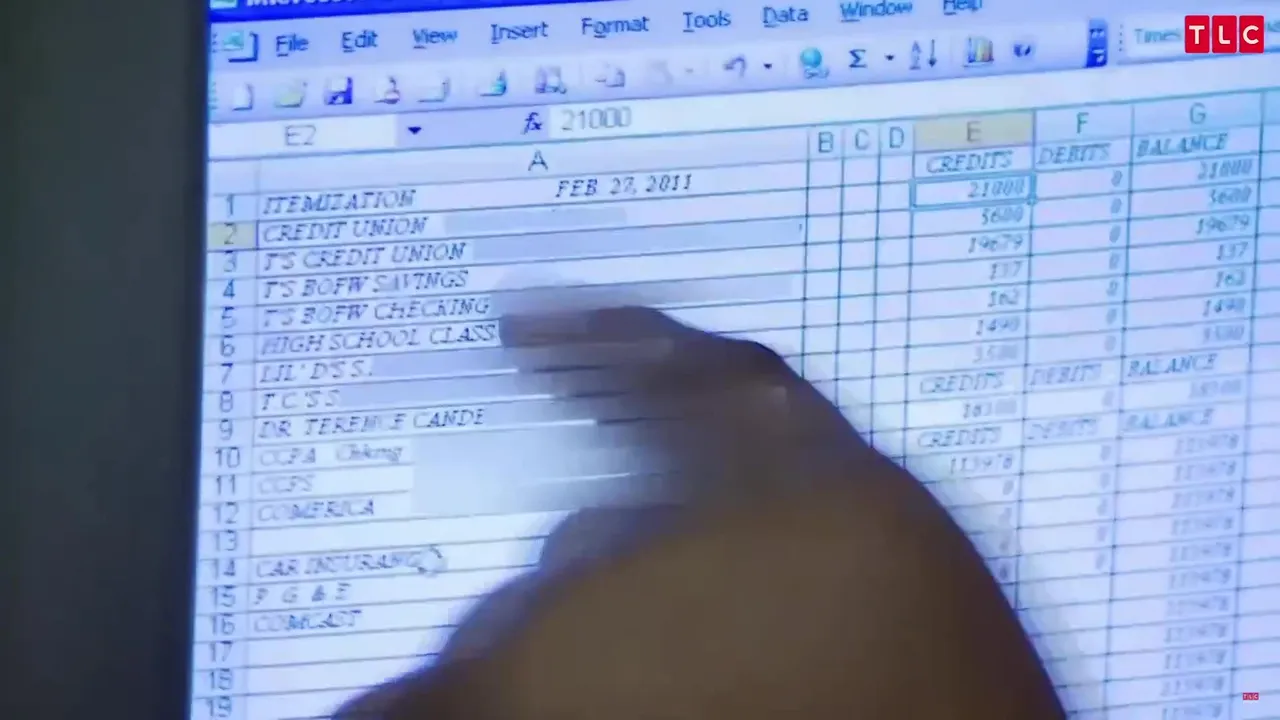 TLC
File Edit View Insert Format Tools Data Window Help
Times
E2 fx 21000
A B C D E F G
1 ITEMIZATION FEB. 27, 2011 CREDITS DEBITS BALANCE
2 CREDIT UNION 21000 0 21000
3 T'S CREDIT UNION 5600 0 5600
4 T'S BOFW SAVINGS 19679 0 19679
5 T'S BOFW CHECKING 137 0 137
6 HIGH SCHOOL CLASS 162 0 162
7 LIL' D'S S. 1490 0 1490
8 T C 'S S 0
9 DR TERENCE CANDE CREDITS DEBITS BALANCE
10 CCPA Chkng 0
11 CCPS CREDITS DEBITS BALANCE
12 COMERICA 113978 0 113978
13 0 113978
14 CAR INSURANC 113978
15 P G & E 113978
16 COMCAST 113978
17 113978
18 113978
19
TLC